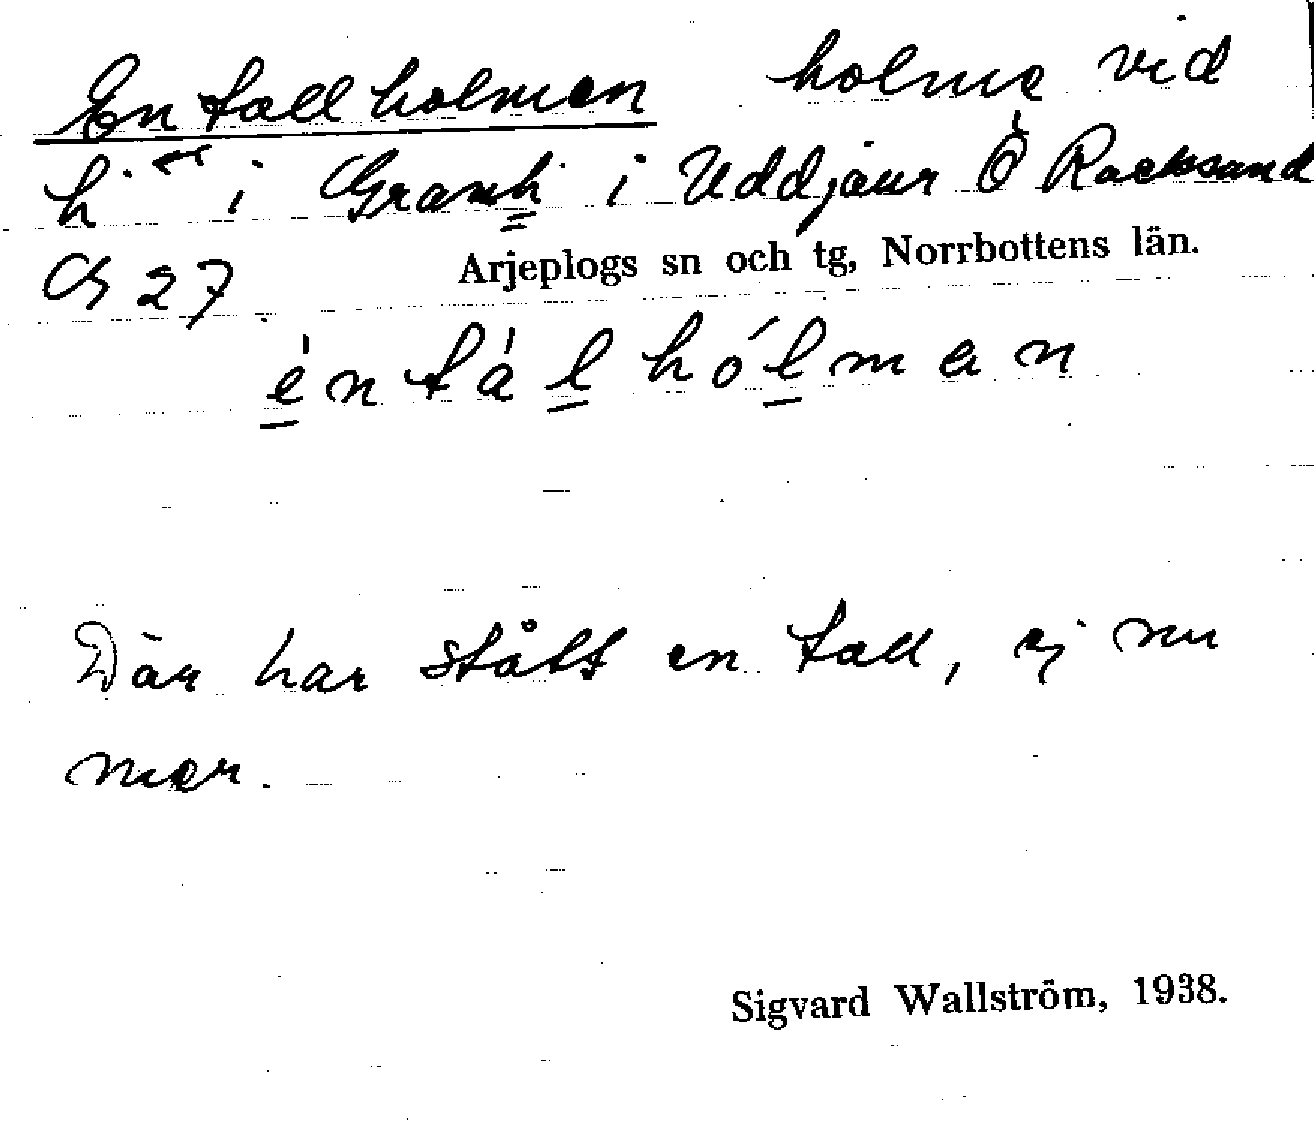 Entallholmen holme vid
i Granh i Uddjaur Ö Racksund
27
Arjeplogs sn och tg, Norrbottens län.
éntálhólman
Där har stått en tall, ej nu
mer.
Sigvard Wallström, 1938.